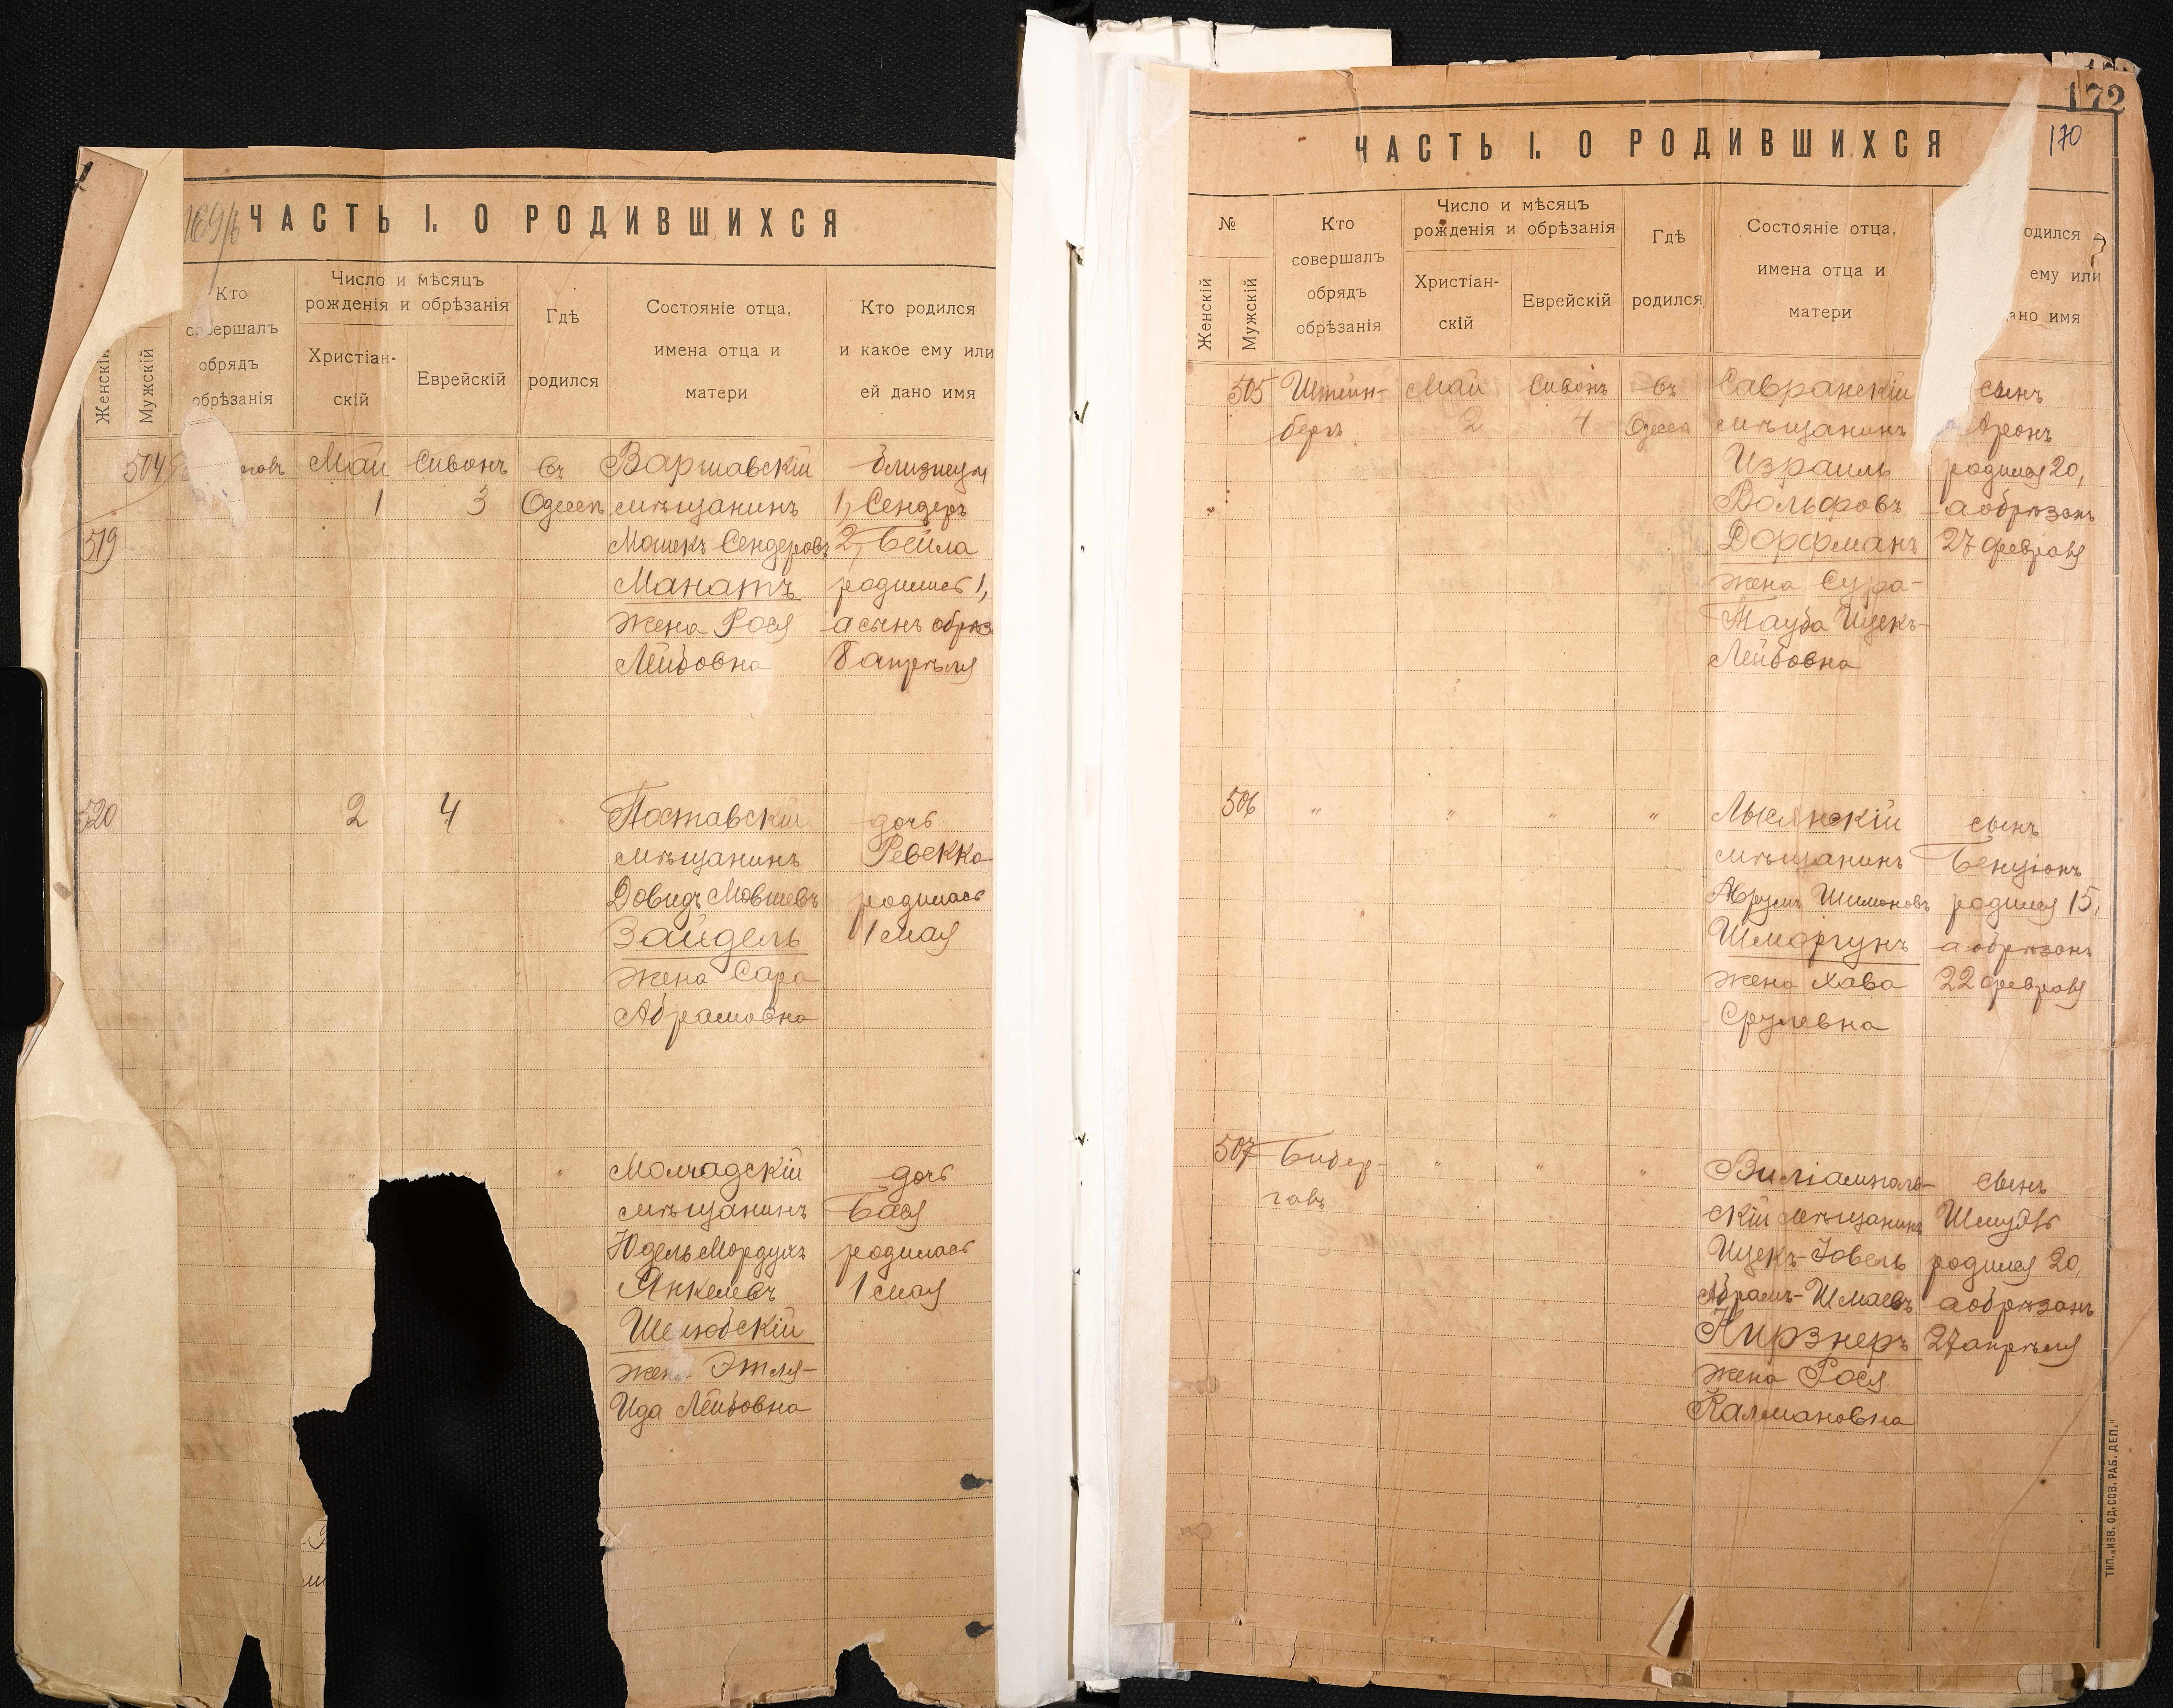 169/б
ЧАСТЬ I. О РОДИВШИХСЯ
Женскій
Мужскій
Кто
совершалъ
обрядъ
обрѣзанія
Число и мѣсяцъ
рожденія и обрѣзанія
Христіан-
скій
Еврейскій
Гдѣ
родился
Состояніе отца,
имена отца и
матери
Кто родился
и какое ему или
ей дано имя
504
519
Май
1
Сивонъ
3
Въ
Одессѣ
Варшавскій
мѣщанинъ
Мошекъ Сендеровъ
Манатъ
жена Рося
Лейбовна
близнецы
1, Сендеръ
2, Бейла
родились 1,
а сынъ обрѣз
8 апрѣля
520
2
4
Поставскій
мѣщанинъ
Довидъ Мовшевъ
Зайдель
жена Сара
Абрамовна
дочь
Ревекка
родилась
1 мая
Молчадскій
мѣщанинъ
Юдель Мордухъ
Янкелевъ
Шелюбскій
жена Этля-
Ида Лейбовна
дочь
Бася
родилась
1 мая
172
170
ЧАСТЬ I. О РОДИВШИХСЯ
№
Женскій
Мужскій
Кто
совершалъ
обрядъ
обрѣзанія
Число и мѣсяцъ
рожденія и обрѣзанія
Христіан-
скій
Еврейскій
Гдѣ
родился
Состояніе отца,
имена отца и
матери
одился
ему или
ано имя
505
Штейн-
бергъ
Май
2
Сивонъ
4
Въ
Одессѣ
Савранскій
мѣщанинъ
Израиль
Вольфовъ
Дорфманъ
жена Сура-
Тауба Ицекъ-
Лейбовна
сынъ
Аронъ
родился 20,
а обрѣзанъ
27 февраля
506
"
"
"
"
Лысянскій
мѣщанинъ
Аврумъ Шимоновъ
Шморгунъ
жена Хава
Срулевна
сынъ
Бенціонъ
родился 15,
а обрѣзанъ
22 февраля
507
Бибер-
гавъ
"
"
"
Виліамполь-
скій мѣщанинъ
Ицекъ-Іовель
Абрамъ-Шмаевъ
Кирзнеръ
жена Рося
Калмановна
сынъ
Шмуль
родился 20,
а обрѣзанъ
27 апрѣля
ТИП. „ИЗВ. ОД. СОВ. РАБ. ДЕП."